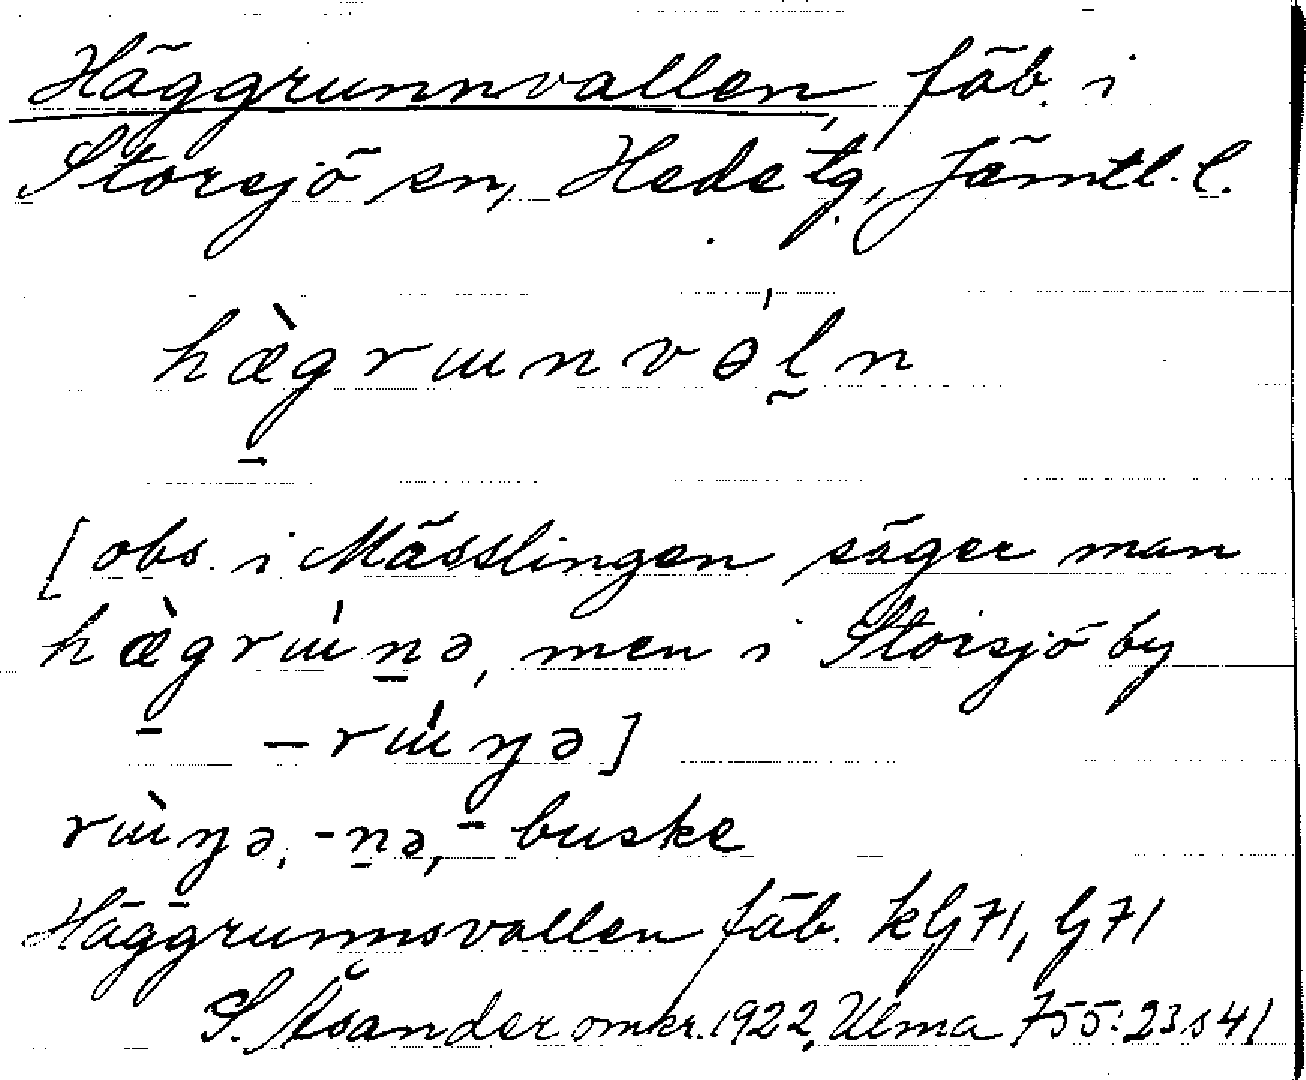 Häggrunnvallen, fäb. i
Storsjö sn, Hede tg, Jämtl. l.
hæ̀g̱rɯnvə́l̰n
[obs. i Mässlingen säger man
hæ̀g̱rɯ́ṉə, men i Storsjö by
– rɯ́ŋə]
rɯ̀ŋə, -ṉə, - buske
Häggrunnsvallen fäb. kG71, G71
S. Åsander omkr. 1922, Ulma 755:23 s 41